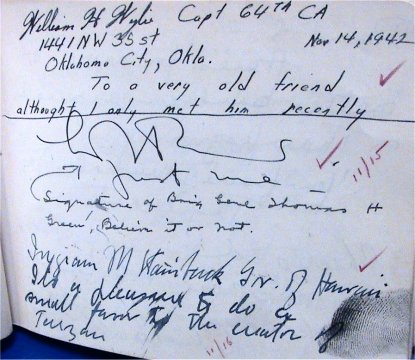 William H Wylie Capt 64TH CA
1441 NW 35 st Nov 14, 1942
Oklahoma City, Okla.
To a very old friend
althought I only met him recently
Just me
11/15
Signature of Brig Genl Thomas H
Green, Believe it or not.
Ingram M Stainback Gov. of Hawaii
It's a pleasure to do a
small favor to the creator of
Tarzan
11/16